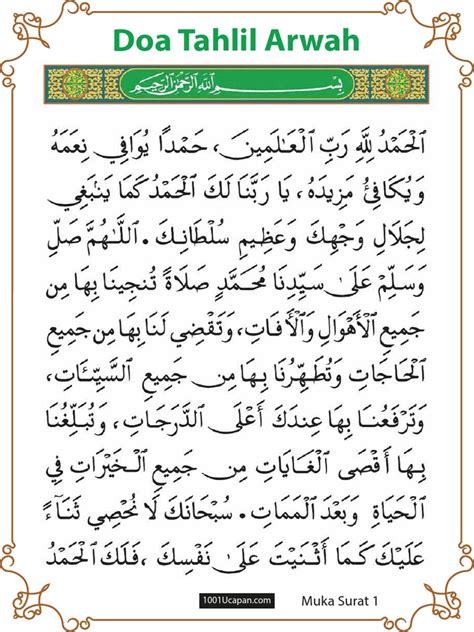 Doa Tahlil Arwah
بِسْمِ اللَّهِ الرَّحْمَٰنِ الرَّحِيمِ
اَلْحَمْدُ لِلَّهِ رَبِّ الْعَالَمِينَ، حَمْدًا يُوَافِي نِعَمَهُ
وَيُكَافِئُ مَزِيدَهُ، يَا رَبَّنَا لَكَ الْحَمْدُ كَمَا يَنْبَغِي
لِجَلَالِ وَجْهِكَ وَعَظِيمِ سُلْطَانِكَ. اَللَّهُمَّ صَلِّ
وَسَلِّمْ عَلَى سَيِّدِنَا مُحَمَّدٍ صَلَاةً تُنْجِينَا بِهَا مِن
جَمِيعِ الْأَهْوَالِ وَالْأَفَاتِ، وَتَقْضِي لَنَا بِهَا مِن جَمِيعِ
الْحَاجَاتِ وَتُطَهِّرُنَا بِهَا مِن جَمِيعِ السَّيِّئَاتِ،
وَتَرْفَعُنَا بِهَا عِندَكَ أَعْلَى الدَّرَجَاتِ، وَتُبَلِّغُنَا
بِهَا أَقْصَى الْغَايَاتِ مِن جَمِيعِ الْخَيْرَاتِ فِي
الْحَيَاةِ وَبَعْدَ الْمَمَاتِ. سُبْحَانَكَ لَا نُحْصِي ثَنَاءً
عَلَيْكَ كَمَا أَثْنَيْتَ عَلَى نَفْسِكَ، فَلَكَ الْحَمْدُ
1001Ucapan.com
Muka Surat 1